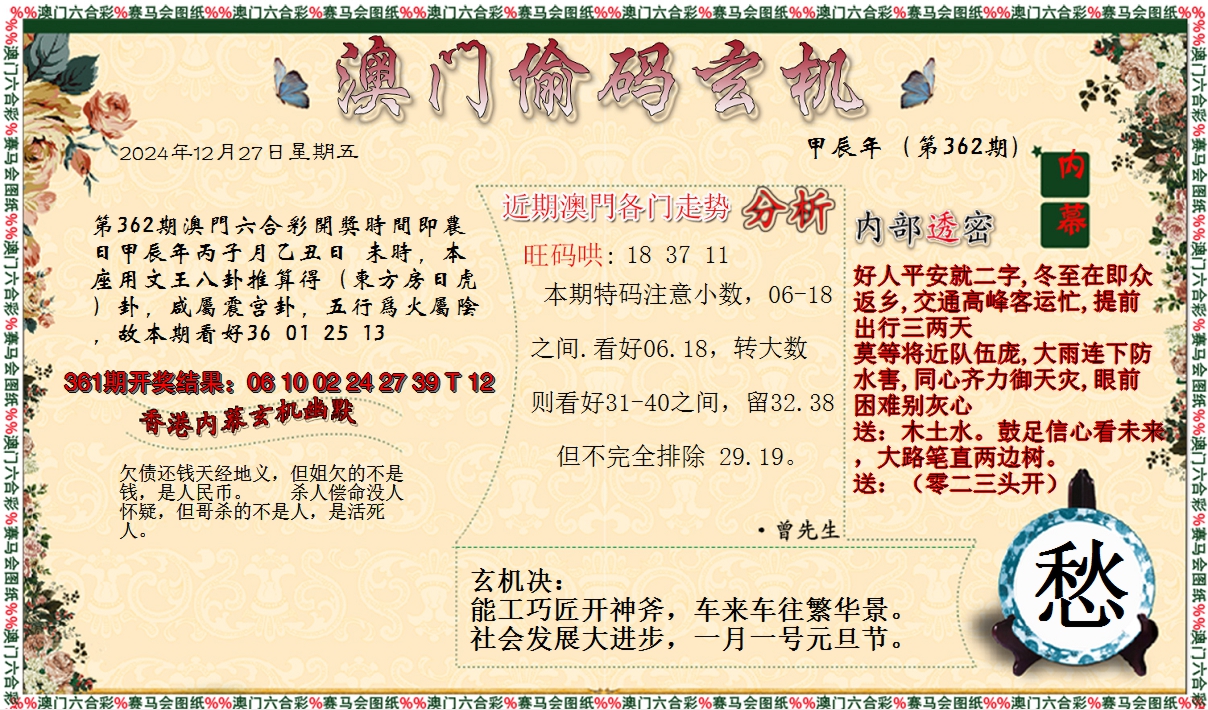 %%澳门六合彩%赛马会图纸%%澳门六合彩%赛马会图纸%%澳门六合彩%赛马会图纸%%澳门六合彩%赛马会图纸%%澳门六合彩%赛马会图纸%%澳门六合彩%赛马会图纸%%
澳门偷码玄机
2024年12月27日星期五
甲辰年（第362期）
内幕
第362期澳門六合彩開獎時間即農
日甲辰年丙子月乙丑日 未時，本
座用文王八卦推算得（東方房日虎
）卦，咸屬震宫卦，五行爲火屬陰
，故本期看好36 01 25 13
361期开奖结果：06 10 02 24 27 39 T 12
香港内幕玄机幽默
欠债还钱天经地义，但姐欠的不是
钱，是人民币。 杀人偿命没人
怀疑，但哥杀的不是人，是活死
人。
近期澳門各门走势 分析
旺码哄: 18 37 11
本期特码注意小数，06-18
之间.看好06.18，转大数
则看好31-40之间，留32.38
但不完全排除 29.19。
·曾先生
内部透密
好人平安就二字,冬至在即众
返乡,交通高峰客运忙,提前
出行三两天
莫等将近队伍庞,大雨连下防
水害,同心齐力御天灾,眼前
困难别灰心
送：木土水。鼓足信心看未来
，大路笔直两边树。
送：（零二三头开）
玄机决：
能工巧匠开神斧，车来车往繁华景。
社会发展大进步，一月一号元旦节。
愁
%%澳门六合彩%赛马会图纸%%澳门六合彩%赛马会图纸%%澳门六合彩%赛马会图纸%%澳门六合彩%赛马会图纸%%澳门六合彩%赛马会图纸%%澳门六合彩%赛马会图纸%%